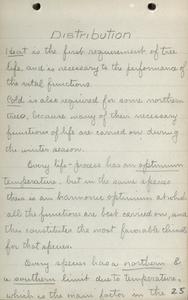 Distribution
Heat is the first requirement of tree
life, and is necessary to the performance of
the vital functions.
Cold is also required for some northern
trees, because many of their necessary
functions of life are carried on during
the winter season.
Every life-process has an optimum
temperature, but in the same species
there is an harmonic optimum at which
all the functions are best carried on, and
this constitutes the most favorable climate
for that species.
Every species has a northern &
a southern limit due to temperature,
which is the main factor in the
25